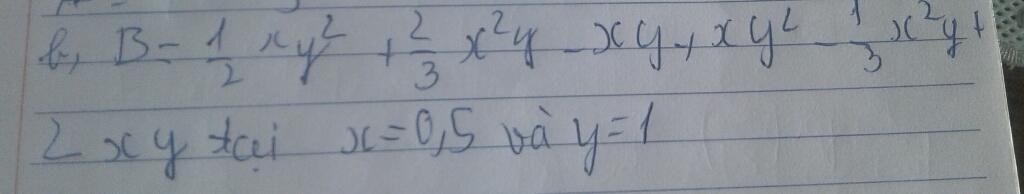 b, B = 1/2 xy² + 2/3 x²y - xy + xy² - 1/3 x²y +
2xy tại x = 0,5 và y = 1